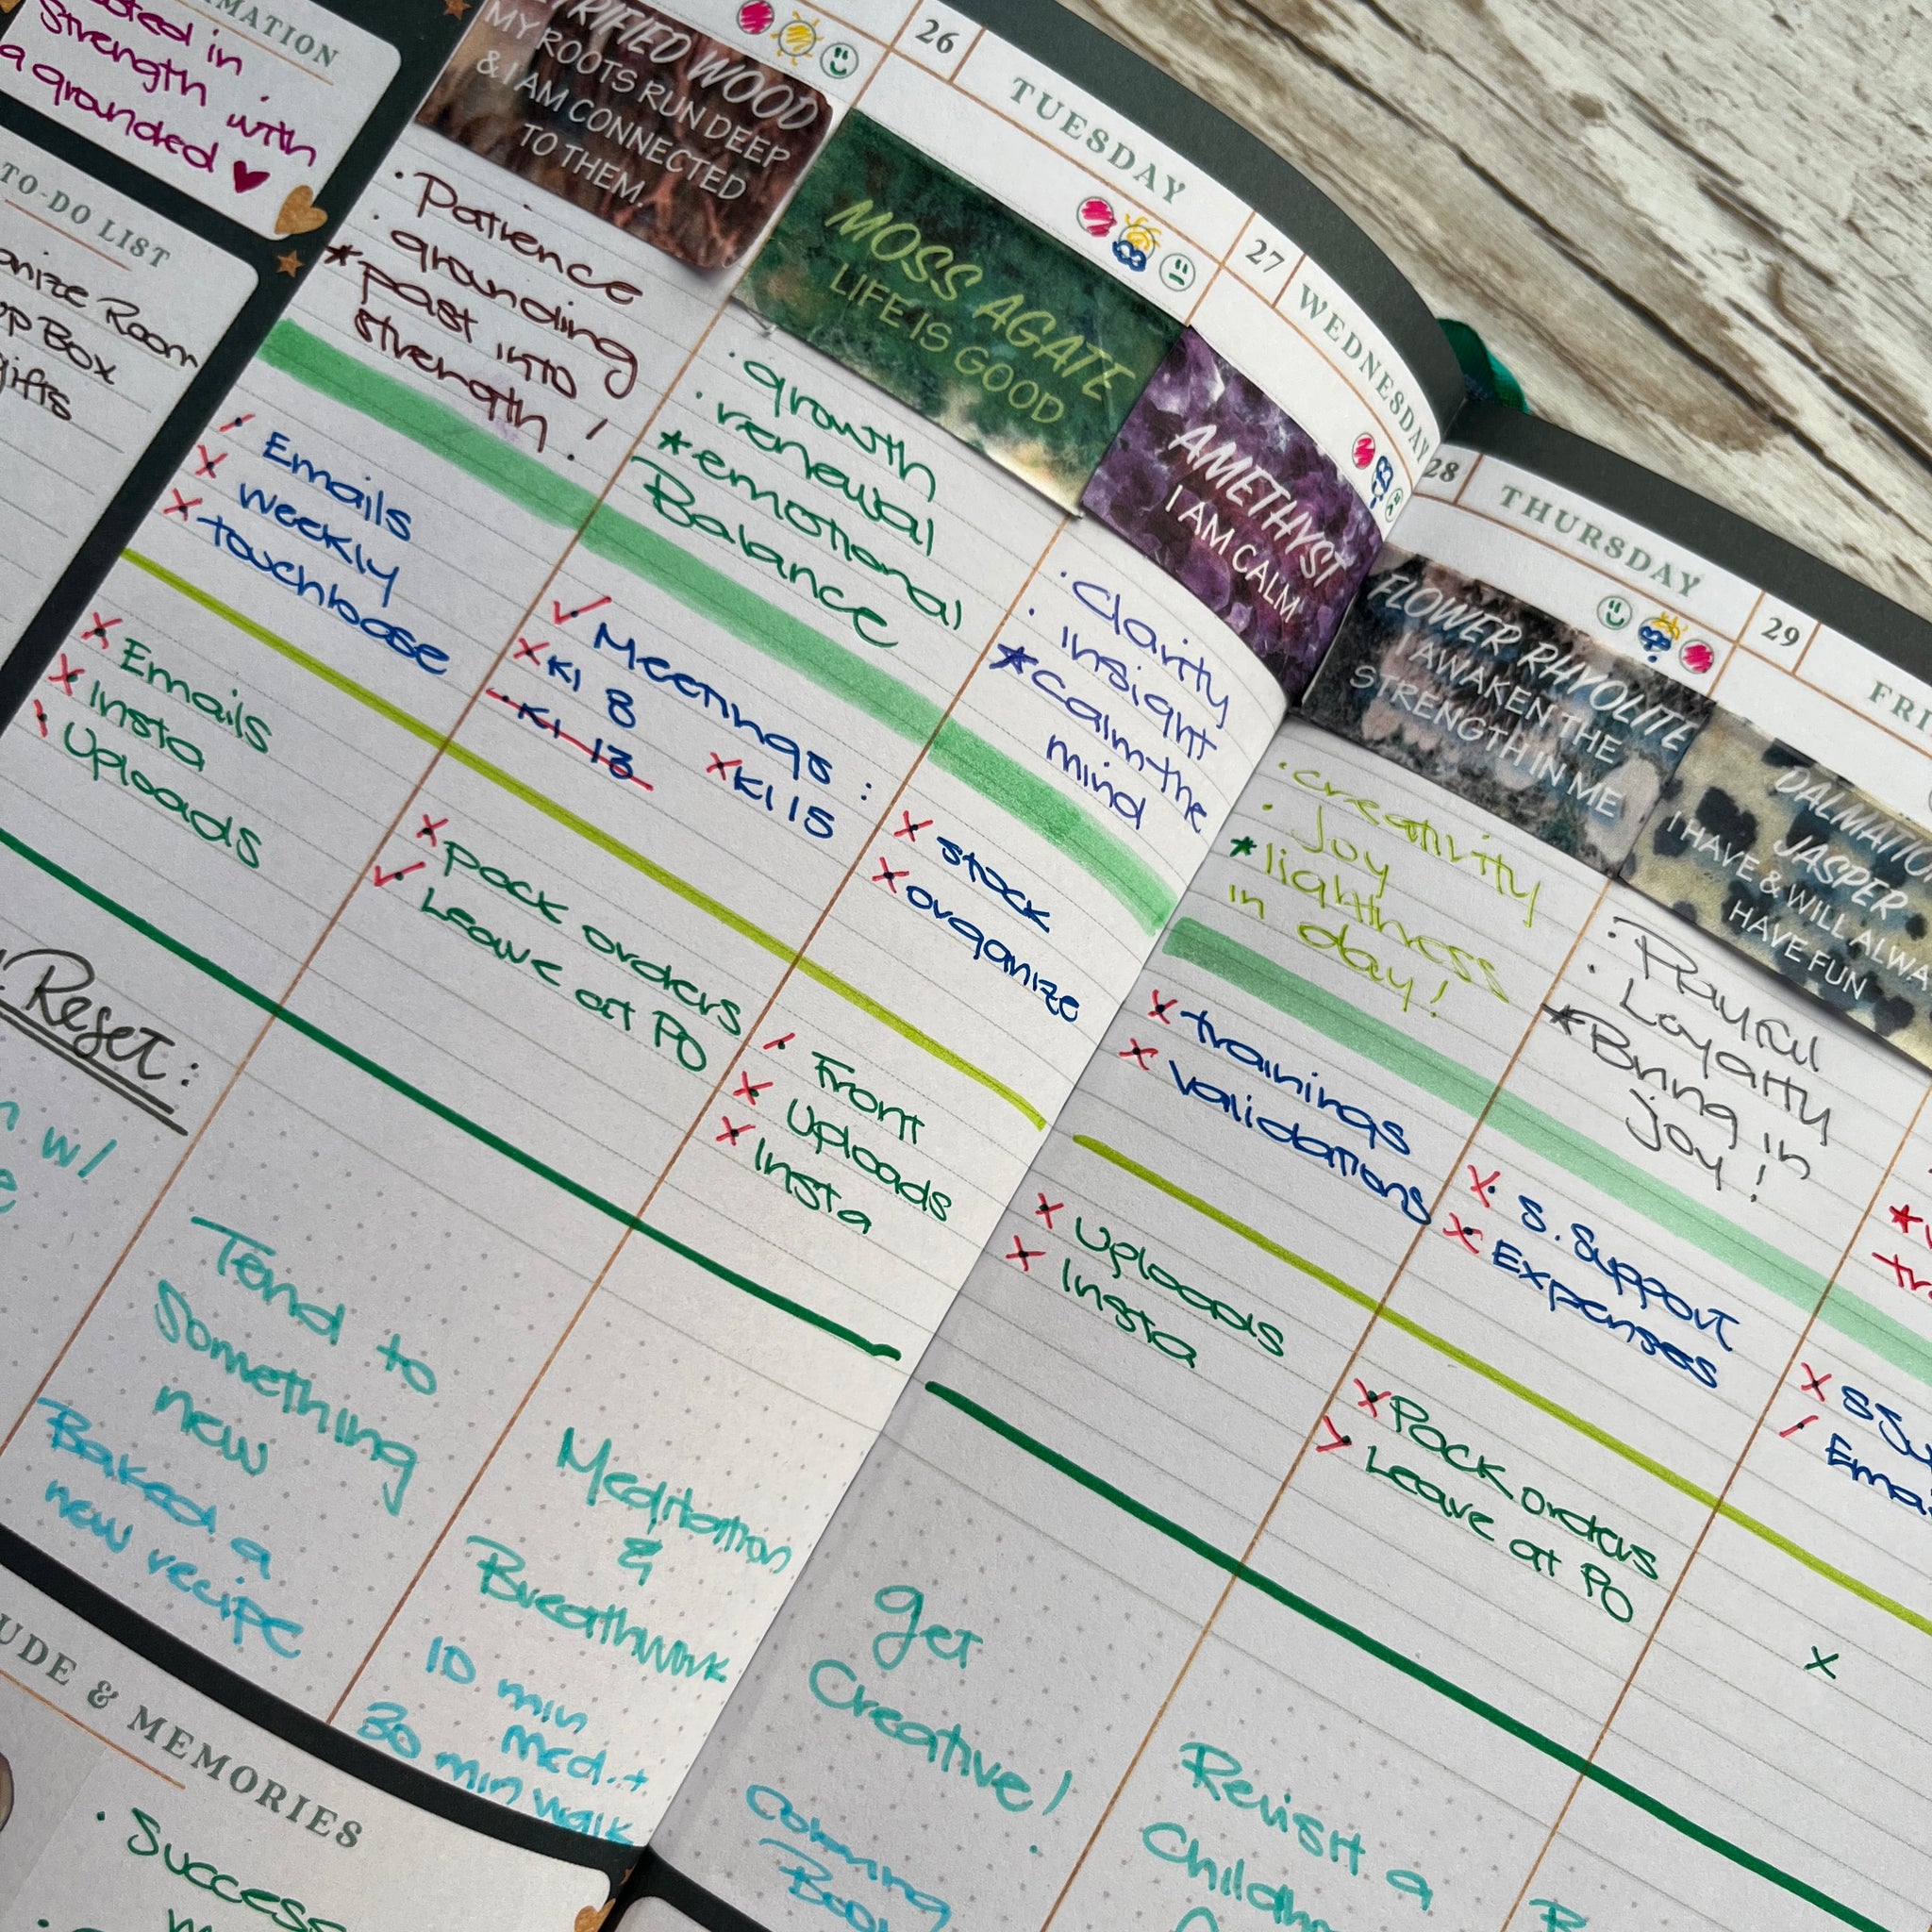 in
strength with
a grounded ♥
TO-DO LIST
Room
Box
gifts
Reset:
w/
WOOD
MY ROOTS RUN DEEP
& I AM CONNECTED
TO THEM.
• Patience
• grounding
* past into
strength!
Emails
weekly
touchbase
Emails
Insta
Uploads
Tend to
Something
new
Baked a
new recipe
26
TUESDAY
MOSS AGATE
LIFE IS GOOD
• growth
• renewal
* emotional
Balance
Meetings:
K1 8
K1 13
K1 15
Pack orders
Leave at PO
Meditation
&
Breathwork
10 min
med. +
30 min walk
27
WEDNESDAY
AMETHYST
I AM CALM
• Clarity
• insight
* calm the
mind
stock
organize
Front
Uploads
Insta
28
THURSDAY
FLOWER RHYOLITE
I AWAKEN THE
STRENGTH IN ME
• creativity
• Joy
* lightness
in day!
trainings
Validations
Uploads
Insta
get
Creative!
Coloring
29
JASPER
I HAVE & WILL
HAVE FUN
• Playful
• Loyalty
* Bring in
Joy!
S. Support
Expenses
Pack orders
Leave at PO
Revisit a
& MEMORIES
• Success